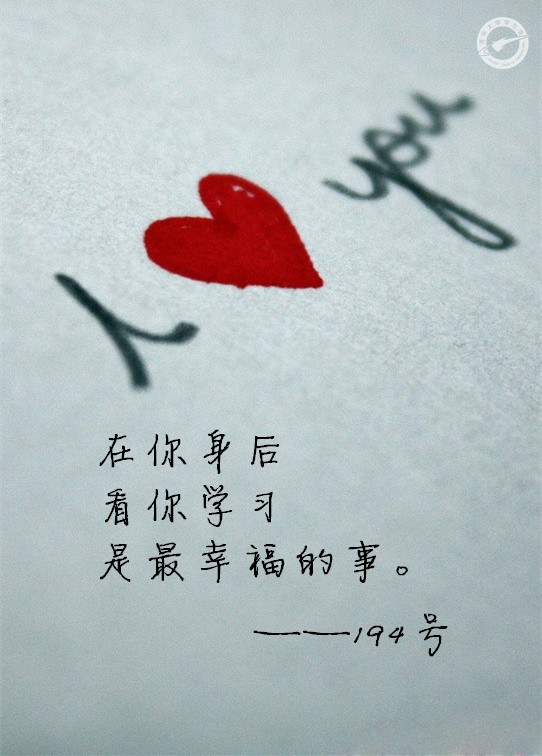 I ♥ you
在你身后
看你学习
是最幸福的事。
——194号